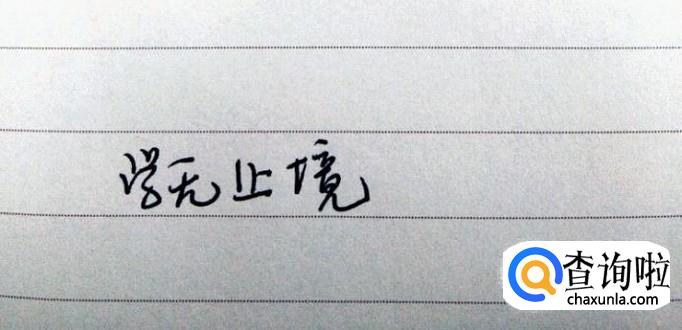 学无止境
查询啦
chaxunla.com